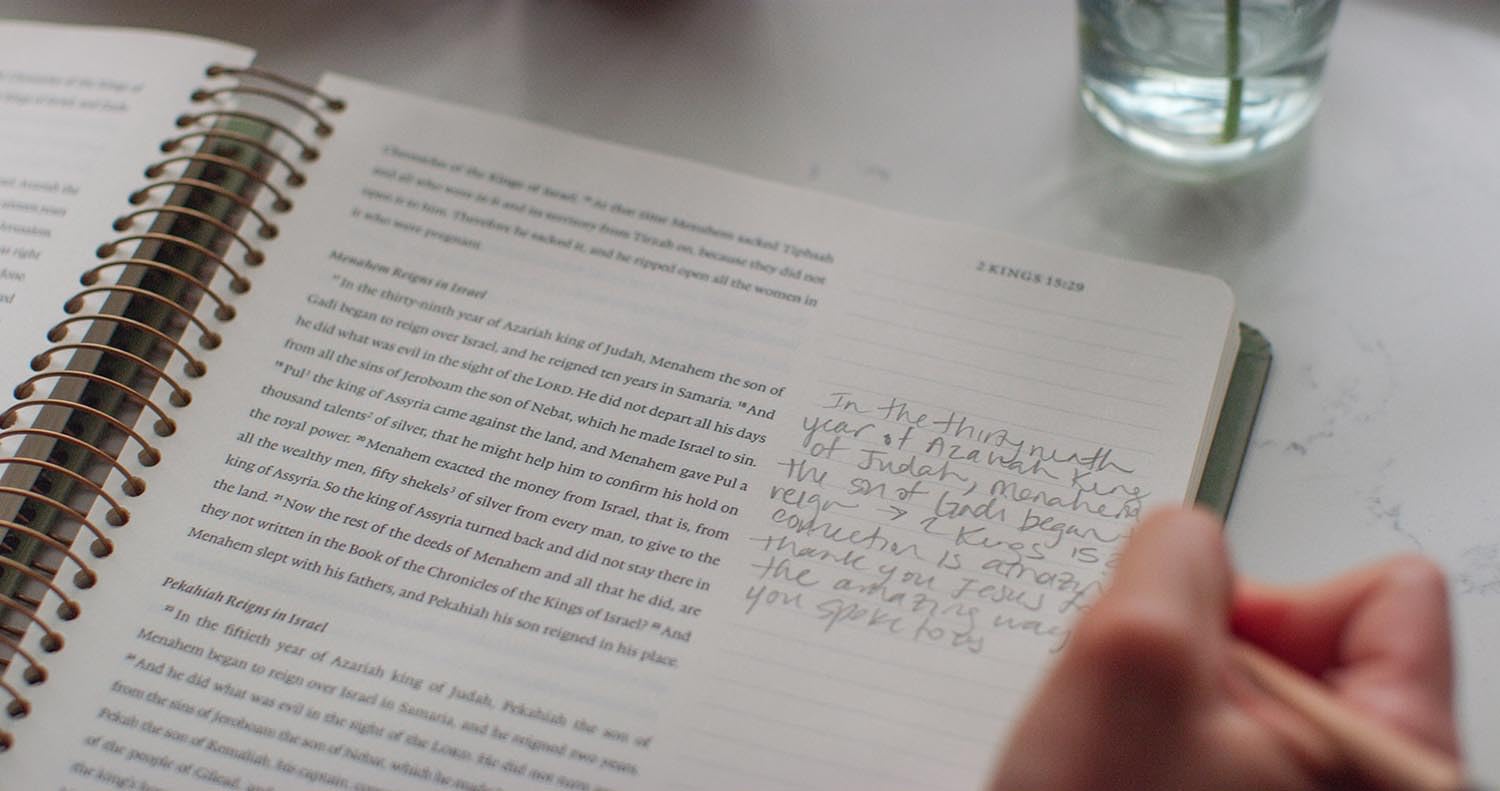 Chronicles of the Kings of
Kings of Israel and Judah.
Azariah the
Jerusalem
right
done
Chronicles of the Kings of Israel. ¹⁶ At that time Menahem sacked Tiphsah
and all who were in it and its territory from Tirzah on, because they did not
open it to him. Therefore he sacked it, and he ripped open all the women in
it who were pregnant.
Menahem Reigns in Israel
¹⁷ In the thirty-ninth year of Azariah king of Judah, Menahem the son of
Gadi began to reign over Israel, and he reigned ten years in Samaria. ¹⁸ And
he did what was evil in the sight of the LORD. He did not depart all his days
from all the sins of Jeroboam the son of Nebat, which he made Israel to sin.
¹⁹ Pul¹ the king of Assyria came against the land, and Menahem gave Pul a
thousand talents² of silver, that he might help him to confirm his hold on
the royal power. ²⁰ Menahem exacted the money from Israel, that is, from
all the wealthy men, fifty shekels³ of silver from every man, to give to the
king of Assyria. So the king of Assyria turned back and did not stay there in
the land. ²¹ Now the rest of the deeds of Menahem and all that he did, are
they not written in the Book of the Chronicles of the Kings of Israel? ²² And
Menahem slept with his fathers, and Pekahiah his son reigned in his place.
Pekahiah Reigns in Israel
²³ In the fiftieth year of Azariah king of Judah, Pekahiah the son of
Menahem began to reign over Israel in Samaria, and he reigned two years.
²⁴ And he did what was evil in the sight of the LORD. He did not turn away
from the sins of Jeroboam the son of Nebat, which he made
Pekah the son of Remaliah, his captain,
of the people of Gilead, and
the king's
2 KINGS 15:29
In the thirty nineth
year of Azariah King
of Judah, Menahem
the son of Gadi began
reign → 2 Kings 15
connection is
thank you Jesus
the amazing way
you spoke to us